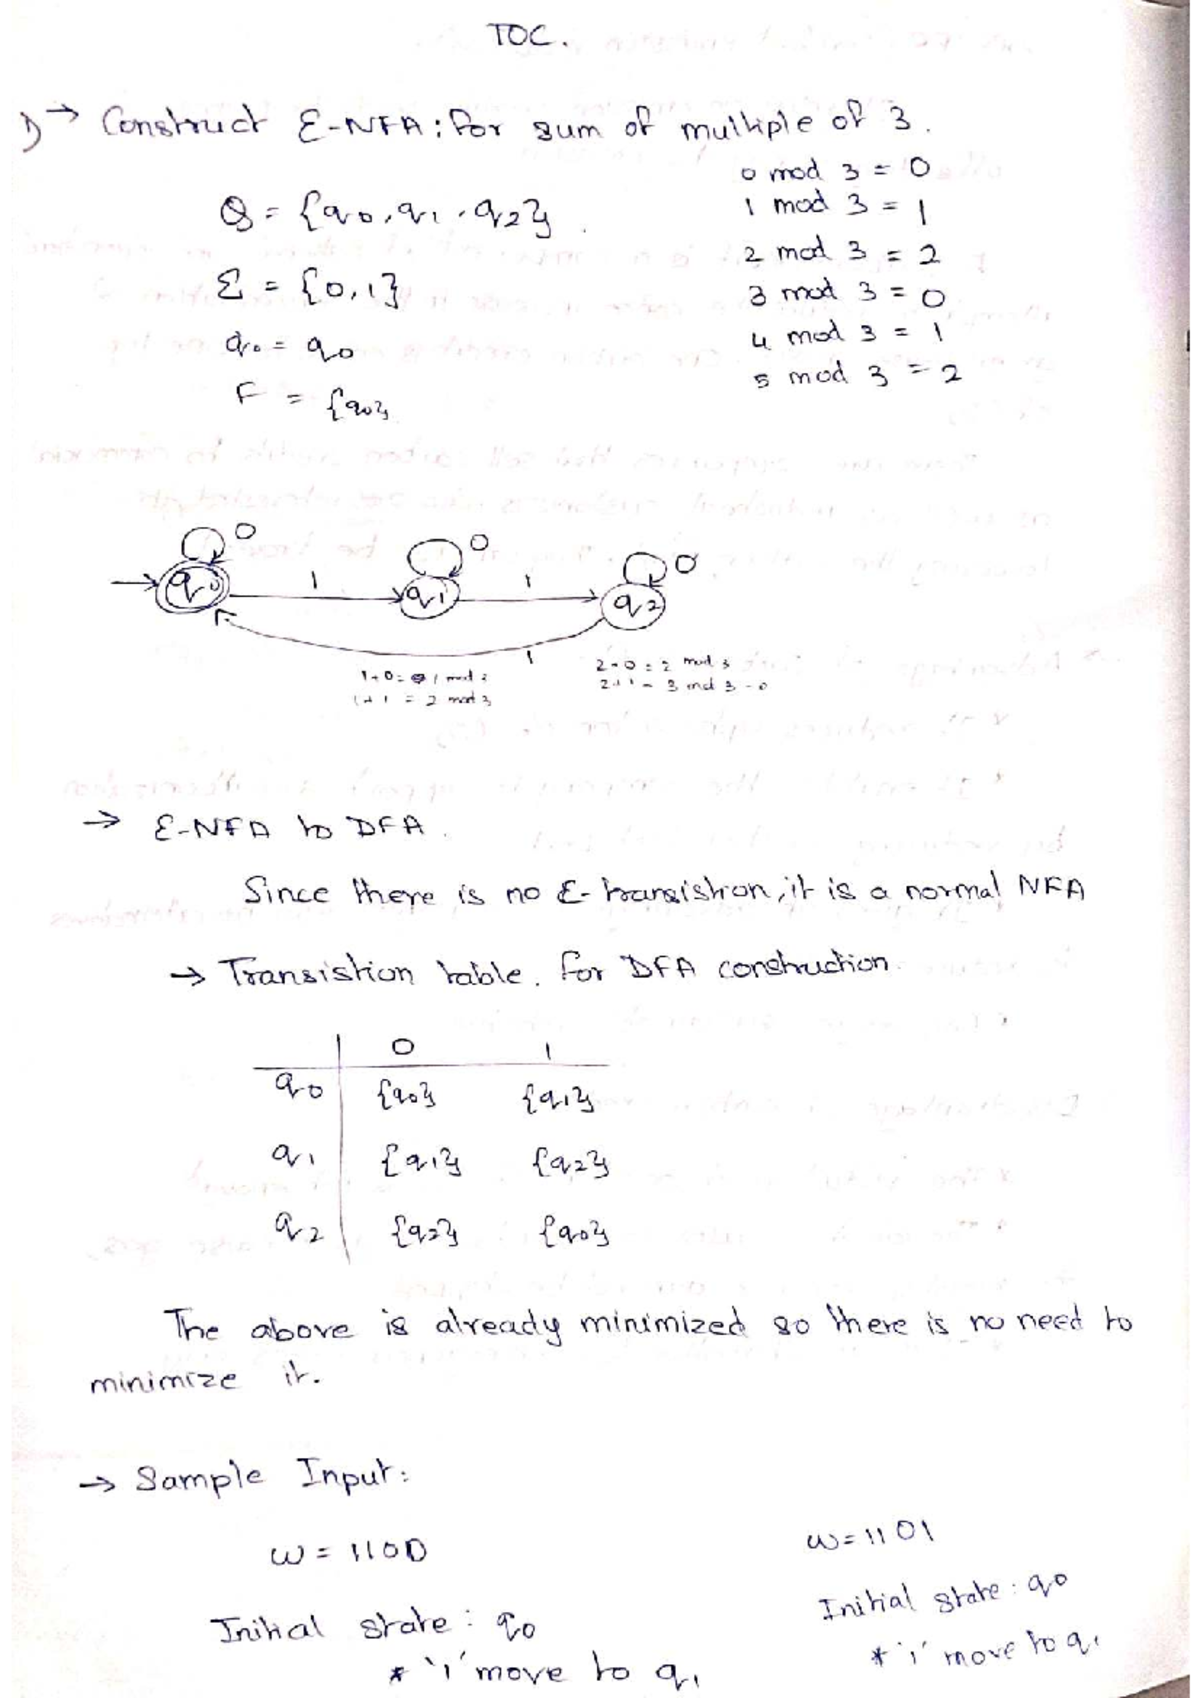 TOC.
1) → Construct Ɛ-NFA: for sum of multiple of 3.
0 mod 3 = 0
Q = {q0, q1, q2}.
1 mod 3 = 1
2 mod 3 = 2
Σ = {0, 1}
3 mod 3 = 0
q0 = q0
4 mod 3 = 1
F = {q0}
5 mod 3 = 2
0 0 0
q0 1 q1 1 q2
1
1+0 = 1 mod 3
1+1 = 2 mod 3
2+0 = 2 mod 3
2+1 = 3 mod 3 = 0
→ Ɛ-NFA to DFA.
Since there is no Ɛ-transistion, it is a normal NFA
→ Transistion table. for DFA construction.
0 1
q0 {q0} {q1}
q1 {q1} {q2}
q2 {q2} {q0}
The above is already minimized so there is no need to
minimize it.
→ Sample Input:
w = 1100
w = 1101
Initial state: q0
Initial state: q0
* '1' move to q1
* '1' move to q1